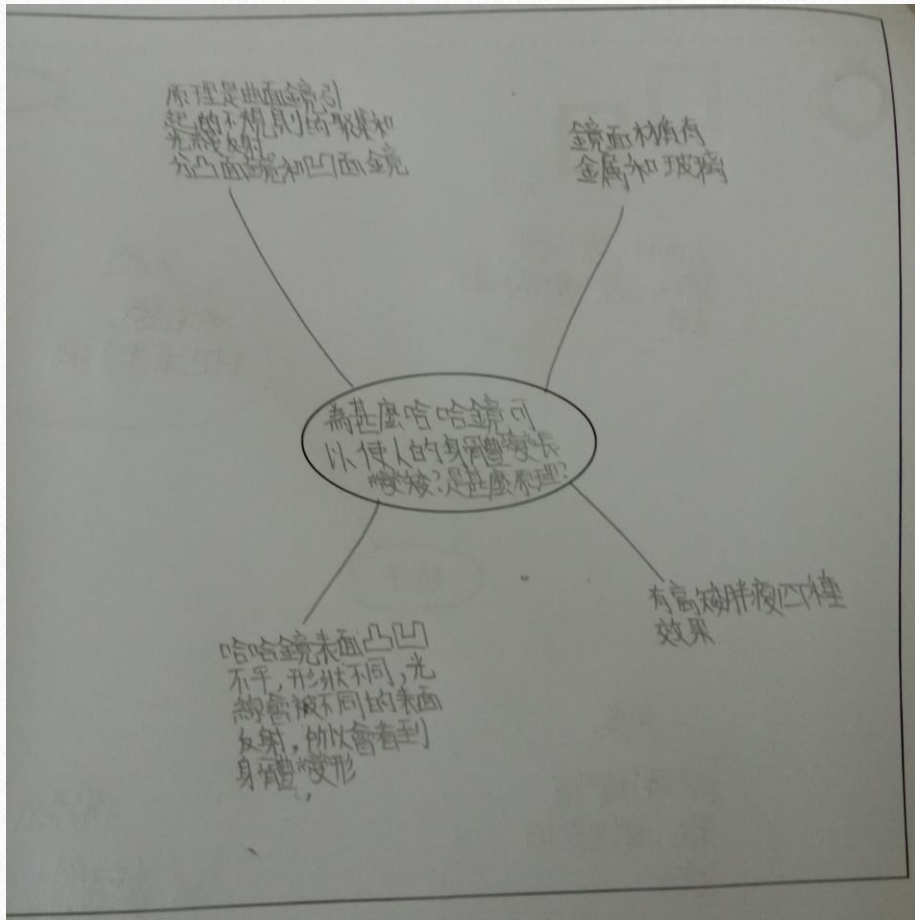 原理是曲面鏡引
起的不規則的聚集和
光線反射
分凸面鏡和凹面鏡
鏡面材質有
金屬和玻璃
為甚麼哈哈鏡可
以使人的身體變長
變矮?是甚麼原理?
哈哈鏡表面凸凹
不平,形狀不同,光
線會被不同的表面
反射,所以會看到
身體變形
有高矮胖瘦四種
效果